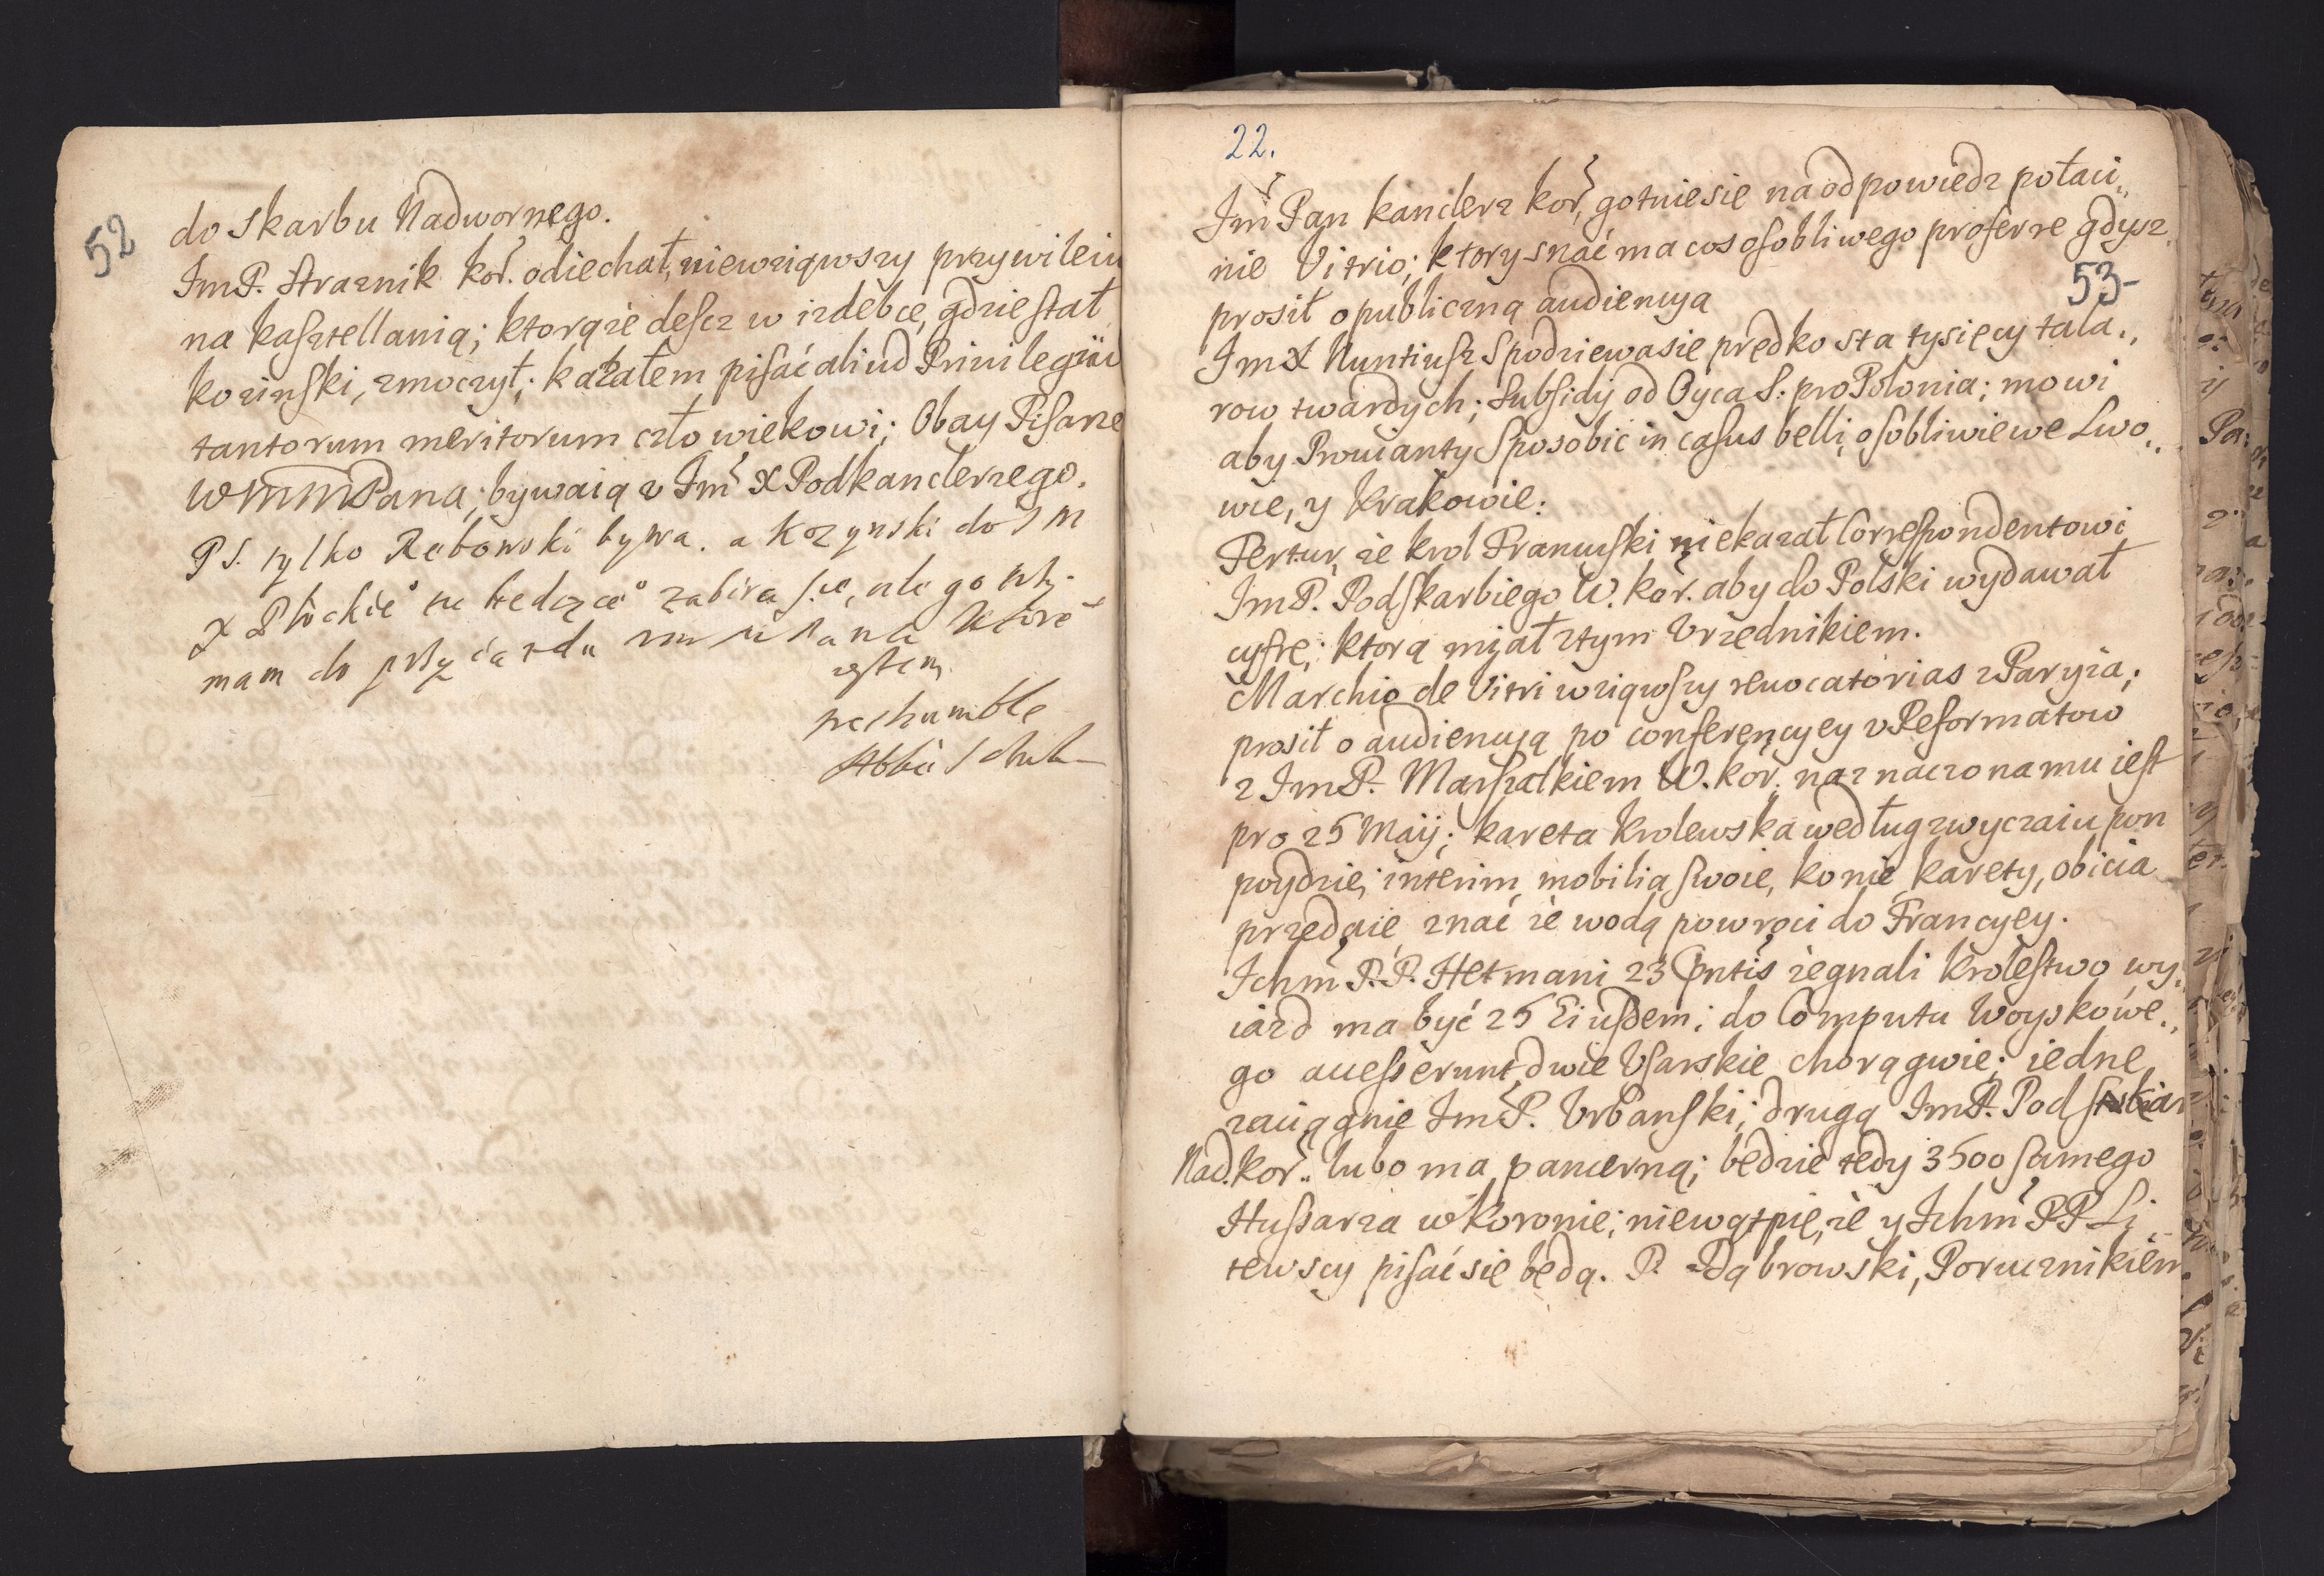 52
do Skarbu Nadwornego.
ImP. Straznik kor. odiechał, niewziąwszy przywileiu
na kasztellanią; ktorąże deszcz w izdebce, gdzie stał
kozinski, zmoczył; kazałem pisać aliud Privilegiu
tantorum meritorum człowiekowi; Obay Pisarze
WMMPana; bywaią v Im X Podkanclerzego.
PS. tylko Rębowski bywa. a Kozynski do IM
X Płockie° zabira się, ale go
mam do przyiazdu Pana ktore°
estem
tres humble
Abbé
22.
Im Pan kanclerz kor, gotuie sie na odpowiedz połaci„
nie Vitrio; ktory snać ma cos osobliwego proferre gdysz
prosił o publiczną audiencya
53-
Im X Nuntiusz Spodziewa sie prędko sta tysięcy tala„
row twardych; Subsidij od Oyca S. pro Polonia; mowi
aby Prowianty Sposobić in casus belli, osobliwie we Lwo„
wie, y Krakowie:
Fertur, że krol Francuski niekazał Correspondentowi
ImP. Podskarbiego W. kor. aby do Polski wydawał
cyfrę; ktorą mjał z tym Vrzędnikiem.
Marchio de Vitri wziąwszy reuocatorias z Paryża;
prosił o audiencyą po conferencyey v Reformatow
z ImP. Marszałkiem W. kor. naznaczona mu iest
pro 25 Maij; kareta krolewska według zwyczaiu pon
poydzie; interim mobilia swoie, konie karety, obicia
przedaie znać że wodą powroci do Francyey.
Ichm P.P. Hetmani 23 Pntis żegnali krolestwo wy„
iazd ma być 25 Eiusdem; do Computu Woyskowe„
go accesserunt dwie Vsarskie chorągwie; iednę
zaciągnie ImP. Vrbanski; drugą ImP. Podskar
Nad. kor.. lubo ma pancerną; będzie tedy 3500 samego
Hussarza w koronie; niewątpię, że y Ichm PP Li„
tewscy pisać się będą. P. Dąbrowski, Porucznikiem